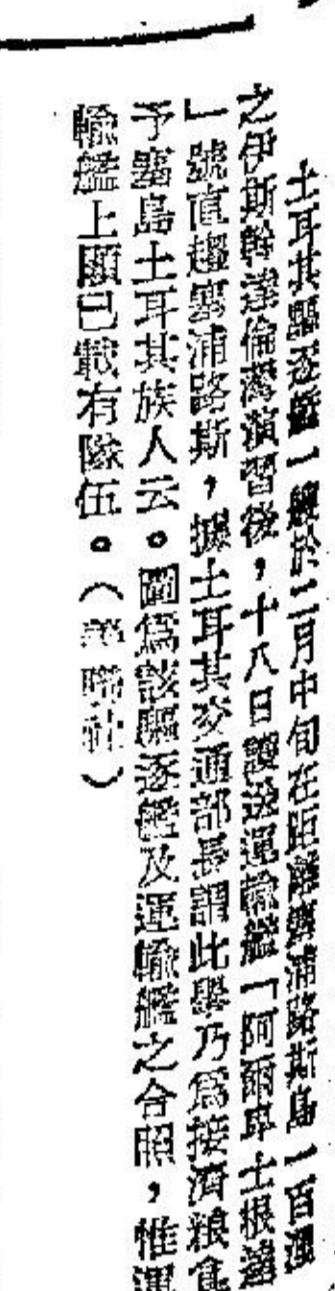 土耳其驅逐艦一艘於二月中旬在距離塞浦路斯島一百浬
之伊斯幹達倫灣演習後，十八日護送運輸艦「阿爾卑土根達
」號直趨塞浦路斯，據土耳其交通部長謂此舉乃為接濟粮食
予塞島土耳其族人云。圖爲該驅逐艦及運輸艦之合照，惟運
輸艦上顯已載有隊伍。（美聯社）